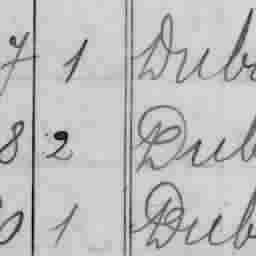 7 1 Dub
8 2 Dub
0 1 Dub